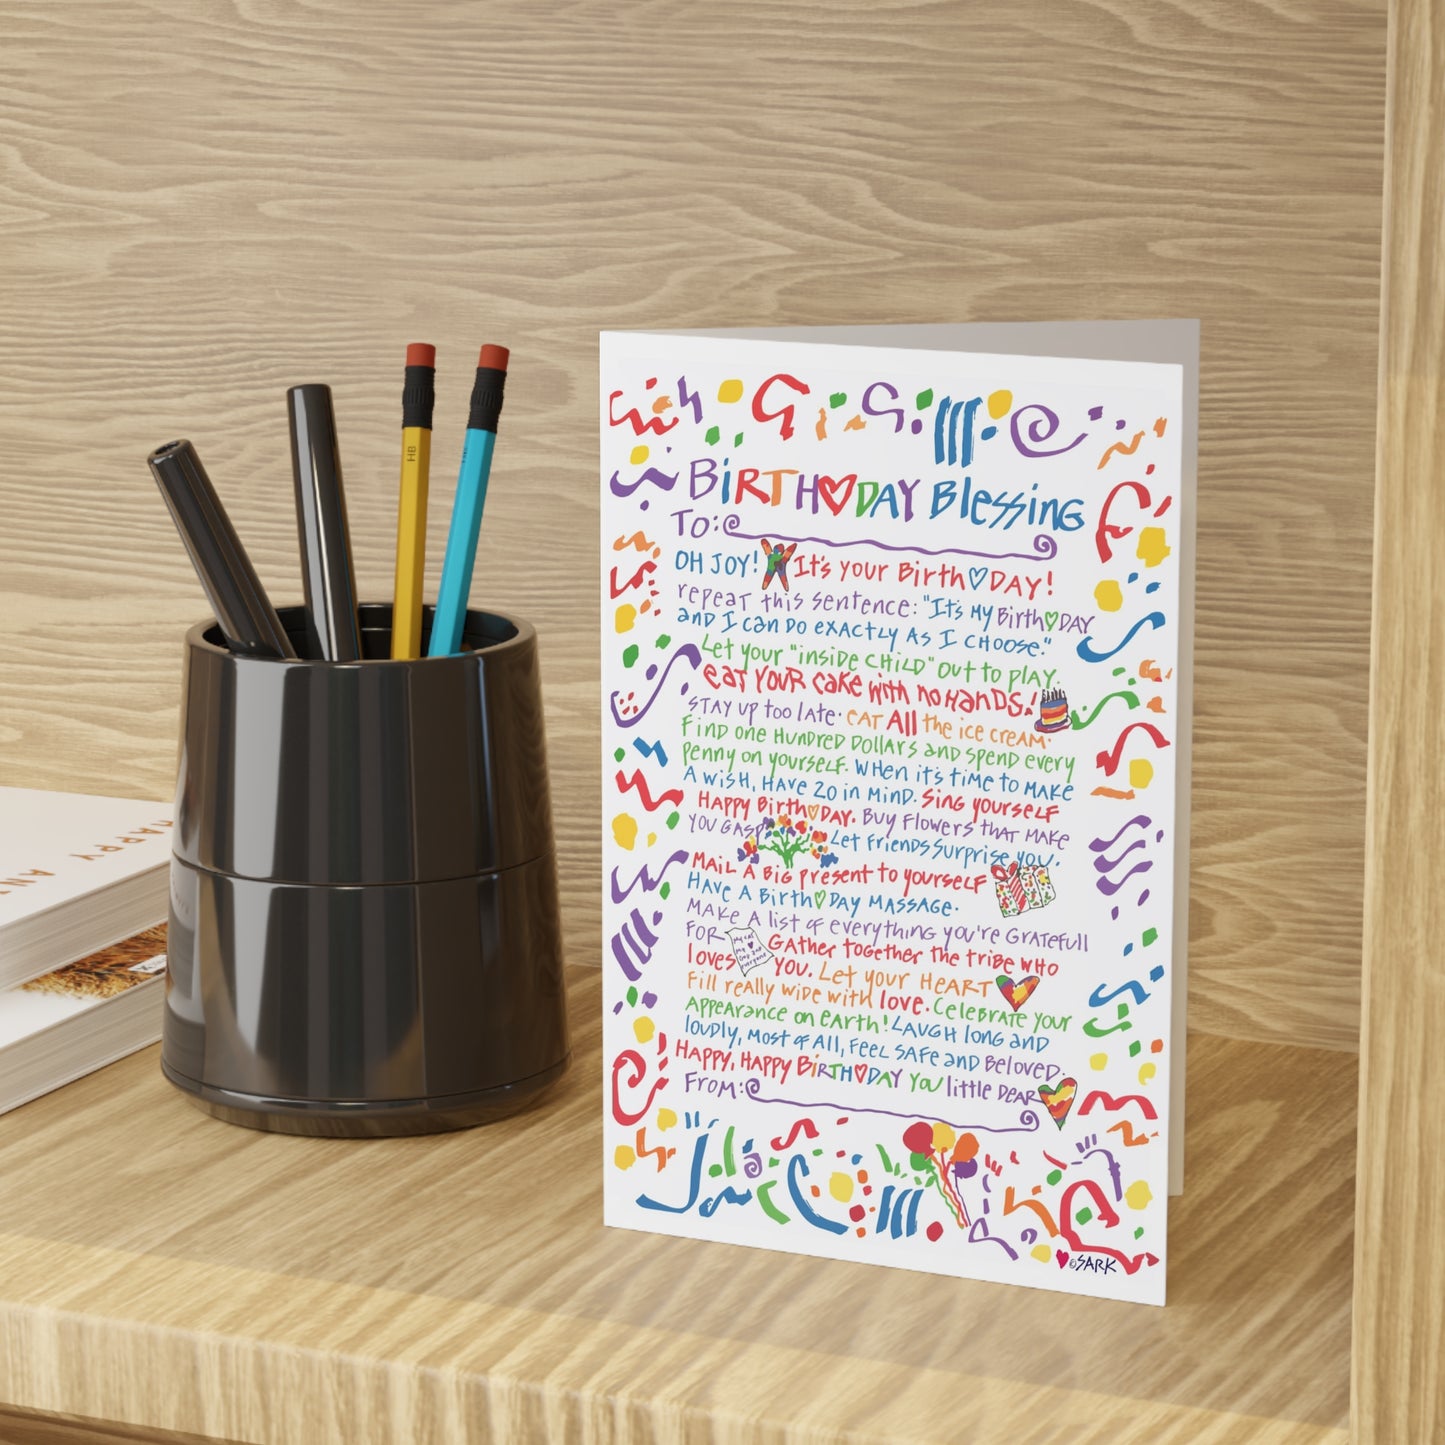 BIRTH♡DAY Blessing
To:
OH JOY! It's your Birth♡DAY!
repeat this sentence: "It's my Birth♡DAY
and I can do exactly as I choose."
Let your "inside child" out to play.
eat your cake with no hands!
Stay up too late. eat All the ice cream.
Find one hundred dollars and spend every
penny on yourself. When it's time to make
a wish, have 20 in mind. Sing yourself
Happy Birth♡day. Buy flowers that make
you gasp Let friends surprise you.
Mail a big present to yourself
Have a Birth♡day massage.
Make a list of everything you're gratefull
for Gather together the tribe who
loves you. Let your heart
fill really wide with love. Celebrate your
appearance on earth! Laugh long and
loudly, most of all, feel safe and beloved.
Happy, Happy Birth♡day you little dear
From:
♥©SARK
HB
HAPPY
ANT